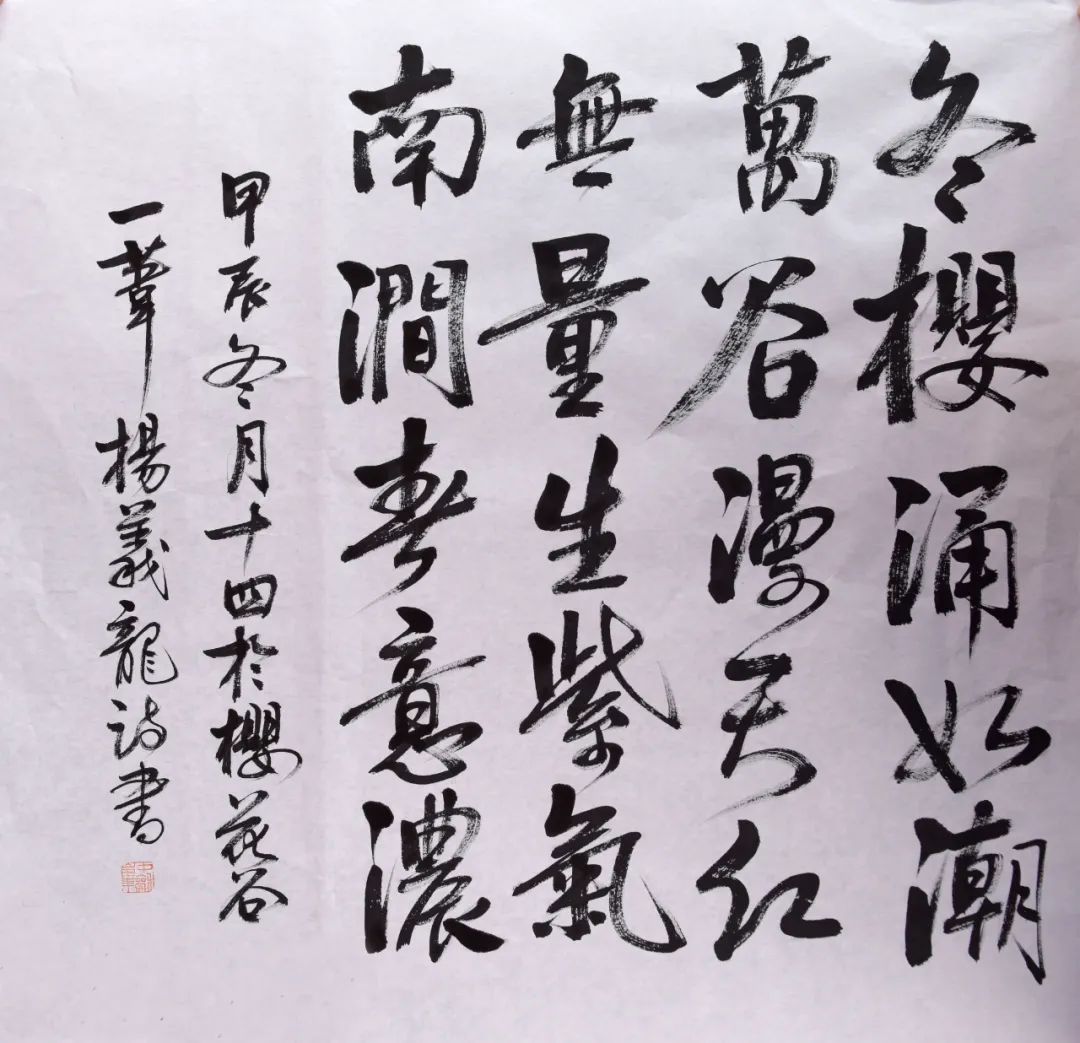 冬櫻涌如潮
萬谷漫天红
無量生紫氣
南澗春意濃
甲辰冬月十四於櫻花谷
一葦楊義龍诗書